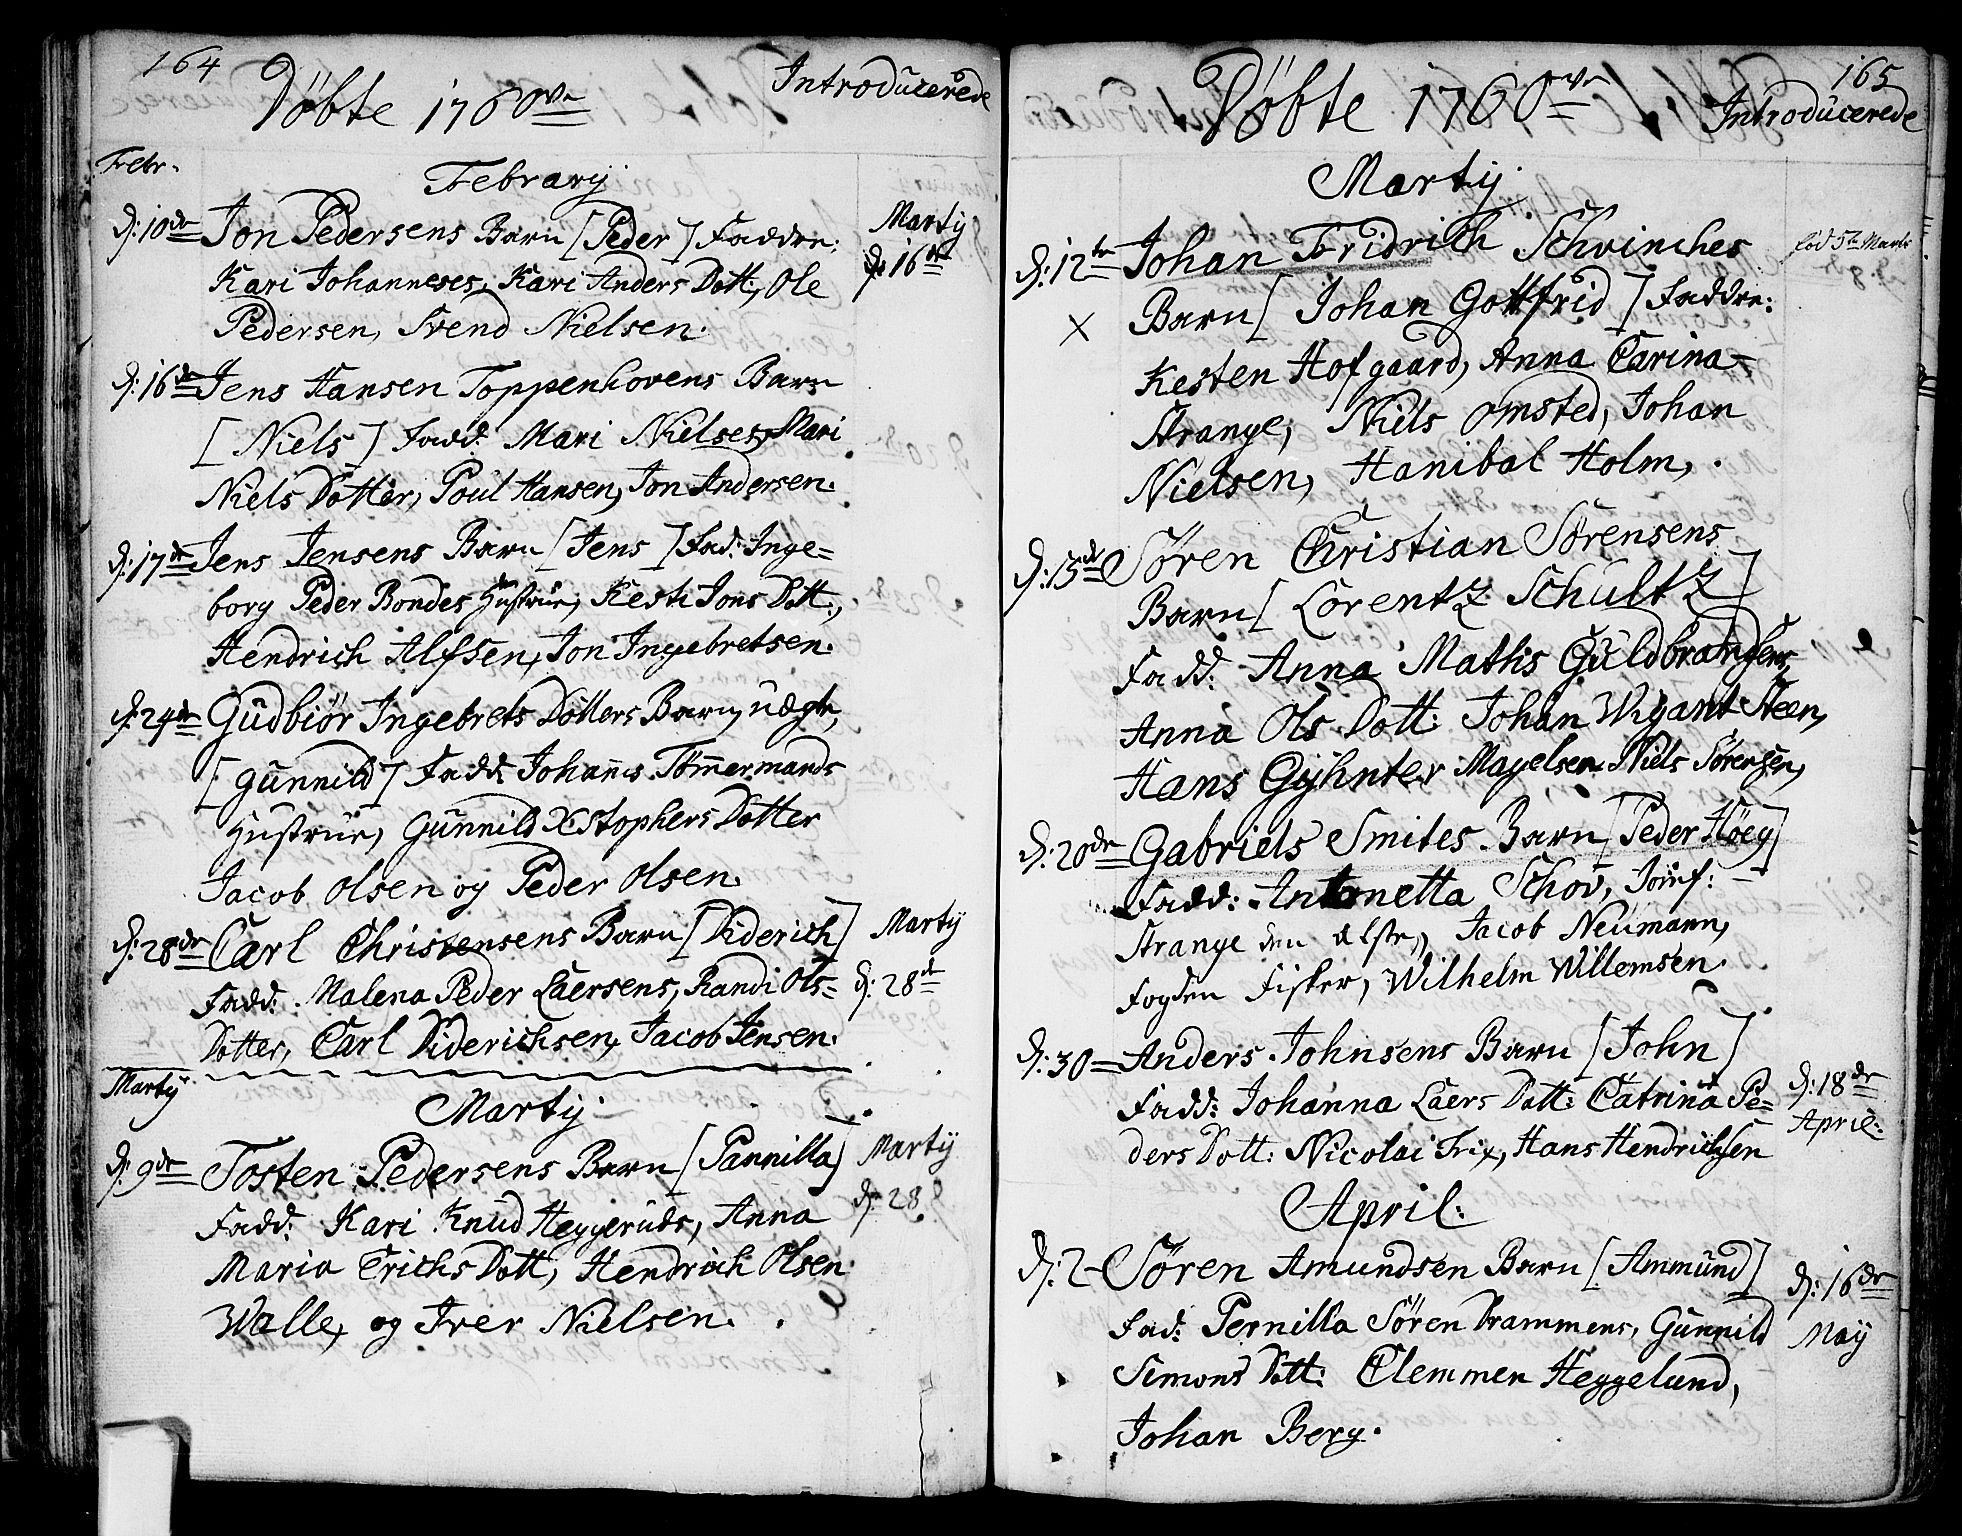 164
Döbte 1760ve
Introducerede
Febr.
Febrary
d: 10de Jon Pedersens Barn [Peder] Faddre:
Marty
d: 16de
Kari Johanneses, Kari Anders Dott:, Ole
Pedersen, Svend Nielsen.
d: 16de Jens Hansen Toppenhovens Barn
[Niels] Fadd: Mari Nielses, Mari
Niels Dotter, Poul Hansen, Jon Andersen.
d: 17de Jens Jensens Barn [Jens] Fad: Inge=
borg Peder Bondes Hustrue, Kesti Jons Dott:,
Hendrich Alfsen, Jon Ingebretsen.
d: 24de Gudbiör Ingebrets Dotters Barn, uægte,
[Gunnild] Fadd: Johannes Tömmermands
Hustrue, Gunnild Xstophers Dotter
Jacob Olsen og Peder Olsen.
d: 28de Carl Christensens Barn [Diderich]
Marty
d: 28de
Fadd: Malena Peder Laersens, Randi Ols=
Dotter, Carl Diderichsen, Jacob Jensen.
Marty
Marty
d: 9de Tosten Pedersens Barn [Pannilla]
Marty
d: 28.
Fadd: Kari Knud Heggeruds, Anna
Maria Erichs Dott, Hendrich Olsen
Walle, og Iver Nielsen.
165
Döbte 1760ve
Introducerede
Marty
d: 12te Johan Fridrich Schvinches
föd 5te Marti
Barn [Johan Gottfrid] Faddre:
Kesten Hofgaard, Anna Carina
Strange, Niels Omsted, Johan
Nielsen, Hanibal Holm,
d: 15de Sören Christian Sörensens
Barn [Lorentz Schultz]
Fadd: Anna Mathis Guldbrandsens,
Anna Ols Dott: Johan Wigant Steen,
Hans Gyhnter Magelsen Niels Sörensen,
d: 20de Gabriels Smites Barn [Peder Höeg]
Fadd: Antonetta Schov, Jomf:
Strange den ælste, Jacob Neumann,
Fogden Fisker, Wilhelm Willemsen.
d: 30 Anders Johnsens Barn [John]
Fadd: Johanna Laers Dott: Catrina Pe=
d: 18de
April:
ders Dott: Nicolai Frix, Hans Hendrichsen
April:
d: 2 Sören Amundsen Barn [Ammund]
d: 16de
May
Fad: Pernilla Sören Drammens, Gunnild
Simons Dott: Clemmen Heggelund,
Johan Berg.